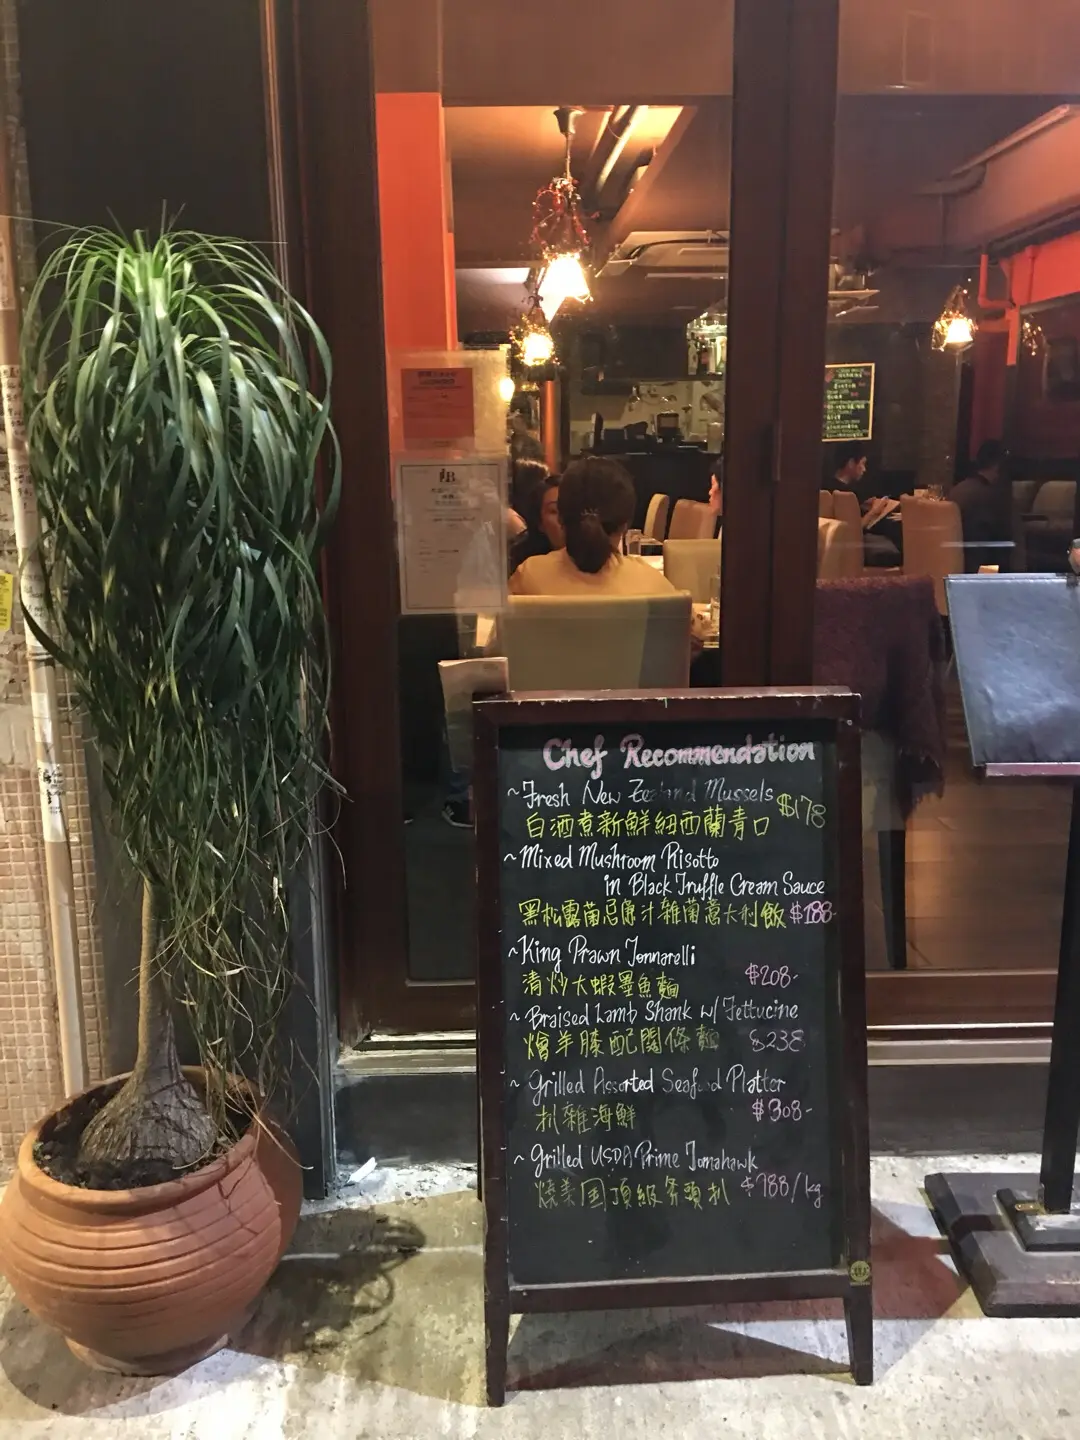 JB
Chef Recommendation
~Fresh New Zealand Mussels
$178
白酒煮新鮮紐西蘭青口
~Mixed Mushroom Risotto
in Black Truffle Cream Sauce
黑松露菌忌廉汁雜菌意大利飯 $188-
~King Prawn Tonnarelli
$208-
清炒大蝦墨魚麵
~Braised Lamb Shank w/ Fettucine
燴羊膝配闊條麵 $238
~ Grilled Assorted Seafood Platter
扒雜海鮮 $308-
~ Grilled USDA Prime Tomahawk
燒美国頂級斧頭扒 $788/kg